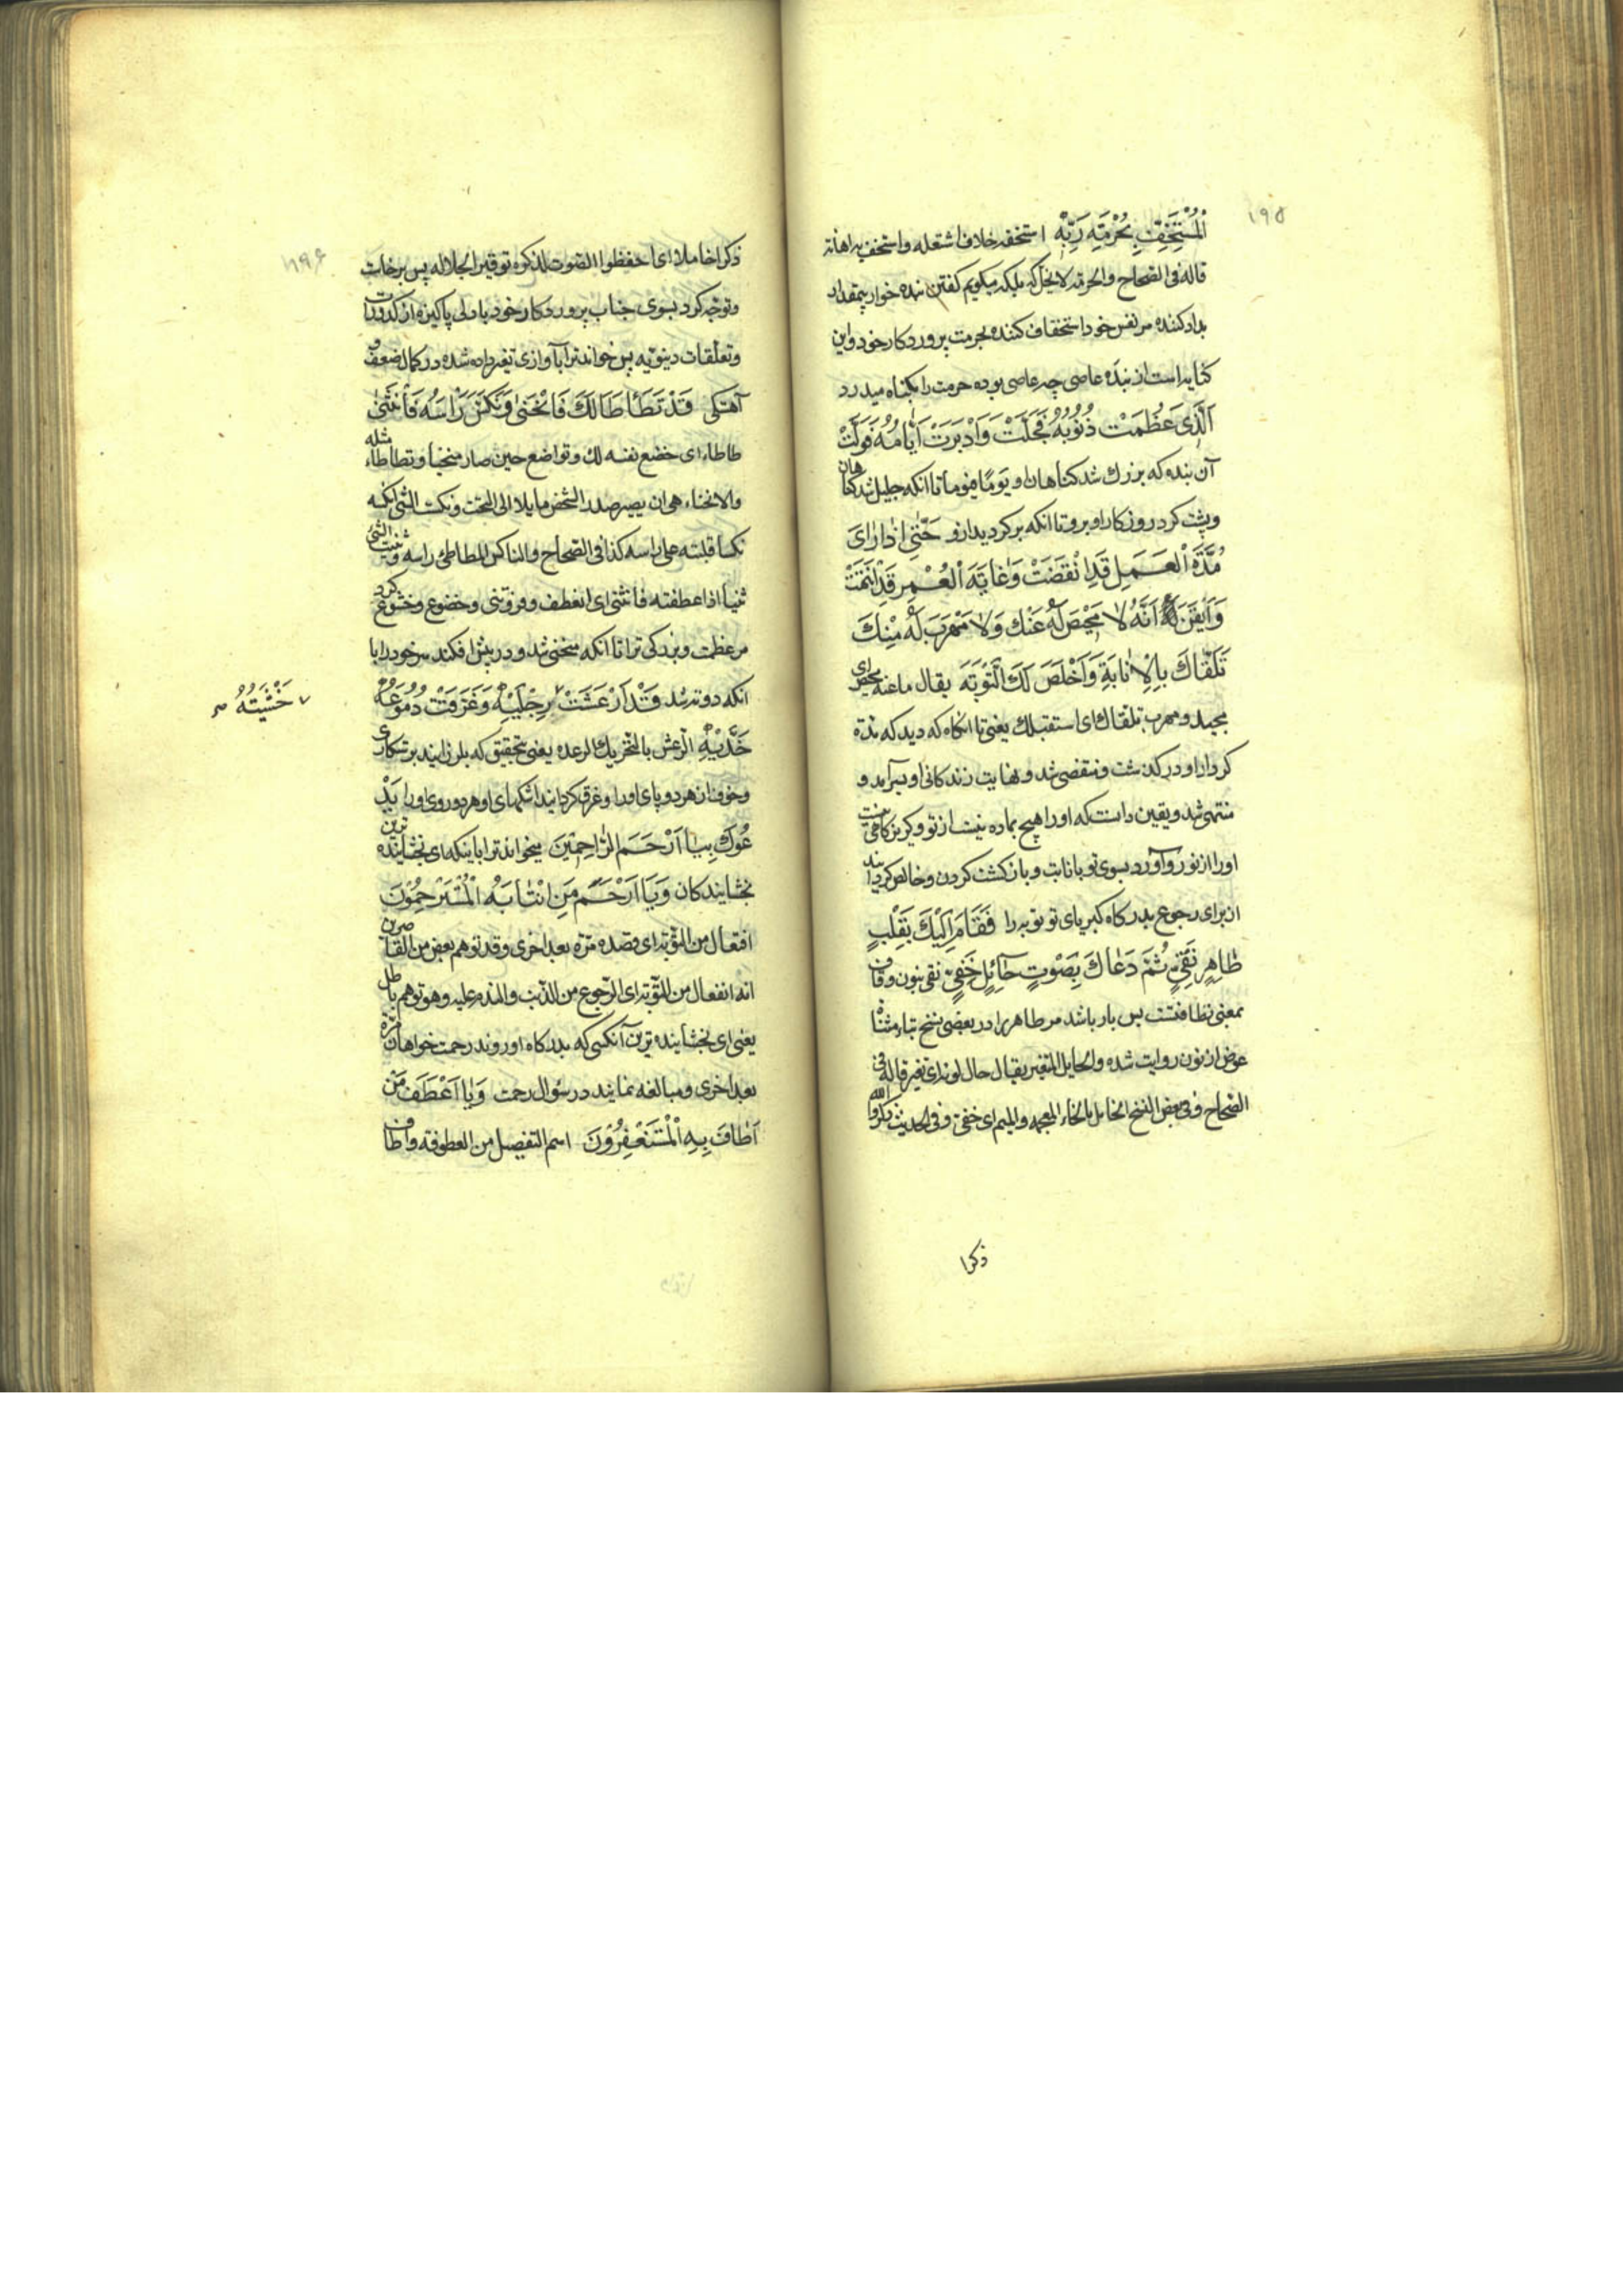 ١٩٥
الْمُسْتَخِفِّ بِحُرْمَةِ رَبِّهِ استخفه خلاف اشتغله واستخف به اهانه
قاله فی الصحاح والحرمة لایحل که بلکه میکویم کفتن بنده خوار بیمقدار
بداد کننده مر نفس خود استخفاف کننده بحرمت پروردکار خود واین
کنایه است از بنده عاصی چه عاصی بوده حرمت را بکناه میدرد
الَّذِی عَظُمَتْ ذُنُوبُهُ فَجَلَّتْ وَاَدْبَرَتْ اَیّٰامُهُ فَوَلَّتْ
آن بنده که بزرك شد کناهان او یومًا فیومًا تا انکه جلیل شد کناهان
وپشت کرد روزکار او برو تا انکه برکردید ازو حَتّٰی اِذٰا رَاٰیَ
مُدَّةَ الْعَمَلِ قَدِ انْقَضَتْ وَغٰایَةَ الْعُمِرِ قَدِ انْتَهَتْ
وَاَیْقَنَ اَنَّهُ لٰا مَحِیْصَ لَهُ عَنْكَ وَلٰا مَهْرَبَ لَهُ مِنْكَ
تَلَقّٰاكَ بِالْاِنٰابَةِ وَاَخْلَصَ لَكَ الْتَّوْبَةَ یقال ما عنه محیص ای
محید ومهرب تلقاك ای استقبلك یعنی تا انکاه که دید که مدة
کردار او در کذشت ومنقضی شد ونهایت زندکانی او بسرآمد و
منتهی شد ویقین دانست که اورا هیچ چاره نیست از تو وکریزکاهی نیست
اورا از تو روآورد بسوی تو بانابت وبازکشت کردن وخالص کردانید
از برای رجوع بدرکاه کبریای تو توبه را فَقٰامَ اِلَیْكَ بِقَلْبٍ
طٰاهِرٍ نَقِیٍّ ثُمَّ دَعٰاكَ بِصَوْتٍ حٰآئِلٍ خَفِیٍّ نقی بنون وقاف
بمعنی نظافتست پس بار باشد مر طاهر را در بعضی نسخ بتاء مثناة
عوض از نون روایت شده والحایل المتغیر یقال حال لونه ای تغیر قاله فی
الصحاح وفی بعض النسخ الخامل بالخاء المعجمه والمیم ای خفی وفی الحدیث اذکروا الله
ذکرا
١٩٦
ذکرا خاملا ای اخفظوا الصوت بذکره توقیرا لجلاله پس برخاست
وتوجه کرد بسوی جناب پروردکار خود بادلی پاکیزه از کدورات
وتعلقات دینویه پس خواند ترا بآوازی تغیر داده شده در کمال ضعف و
آهستکی قَدْ تَطَأْطَأَ لَكَ فَانْحَنٰی وَنَكَّسَ رَاْسَهُ فَانْثَنٰی
طاطاء ای خضع نفسه لك وتواضع حین صار منحنیا وتطاطاء مثله
والانحناء هی ان یصیر صدر الشخص مایلا الی التحت ونکست الشی انکسه
نکسا قلبته علی راسه کذا فی الصحاح والناکس المطاطئ راسه وثنیت الشئ
ثنیا اذا عطفته فانثنی ای انعطف وفروتنی وخضوع وخشوع کرد
مر عظمت وبزرکی ترا تا انکه منحنی شد ودر پیش افکند سر خود را با
انکه دوته شد قَدْ اَرْعَشَتْ رِجْلَیْهِ وَغَرَّقَتْ دُمُوعُهُ
خَشْیَتُهُ صح
خَدَّیْهِ الرعش بالتحریك الرعده یعنی بتحقیق که بلرزانید ترسکاری
وخوف از هر دو پای اورا وغرق کردانید اشکهای او هر دو روی اورا یَدْ
عُوكَ بِیٰا اَرْحَمَ الرّٰاحِمِیْنَ میخواند ترا باینکه ای بخشاینده ترین
بخشایندکان وَیٰا اَرْحَمَ مَنِ انْتٰابَهُ الْمُسْتَرْحِمُوْنَ
افتعال من النوبة ای قصده مرة بعد اخری وقد توهم بعض من القاصرین
انه انفعال من التوبة ای الرجوع من الذنب والندم علیه وهو توهم باطل
یعنی ای بخشاینده ترین آنکسی که بدرکاه او روند رحمت خواهان مرة
بعد اخری ومبالغه نمایند در سؤال رحمت وَیٰا اَعْطَفَ مَنْ
اَطٰافَ بِهِ الْمُسْتَغْفِرُوْنَ اسم التفصیل من العطوفة واطاف